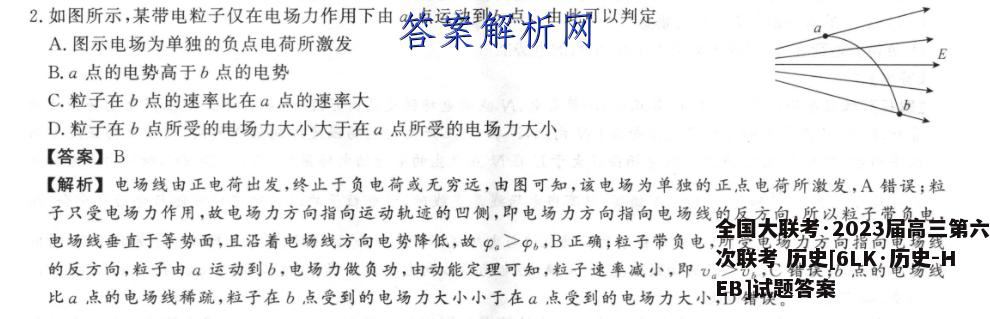 2. 如图所示,某带电粒子仅在电场力作用下由 a 点运动到 b 点,由此可以判定
答案解析网
A. 图示电场为单独的负点电荷所激发
B. a 点的电势高于 b 点的电势
C. 粒子在 b 点的速率比在 a 点的速率大
D. 粒子在 b 点所受的电场力大小大于在 a 点所受的电场力大小
a
E
b
【答案】B
【解析】电场线由正电荷出发,终止于负电荷或无穷远,由图可知,该电场为单独的正点电荷所激发,A 错误;粒
子只受电场力作用,故电场力方向指向运动轨迹的凹侧,即电场力方向指向电场线的反方向,所以粒子带负电,
电场线垂直于等势面,且沿着电场线方向电势降低,故 φₐ>φ_b,B 正确;粒子带负电,所受电场力方向指向电场线
的反方向,粒子由 a 运动到 b,电场力做负功,由动能定理可知,粒子速率减小,即 vₐ>v_b,C 错误;b 点的电场线
比 a 点的电场线稀疏,粒子在 b 点受到的电场力大小小于在 a 点受到的电场力大小,D 错误。
全国大联考·2023届高三第六
次联考 历史[6LK·历史-H
EB]试题答案